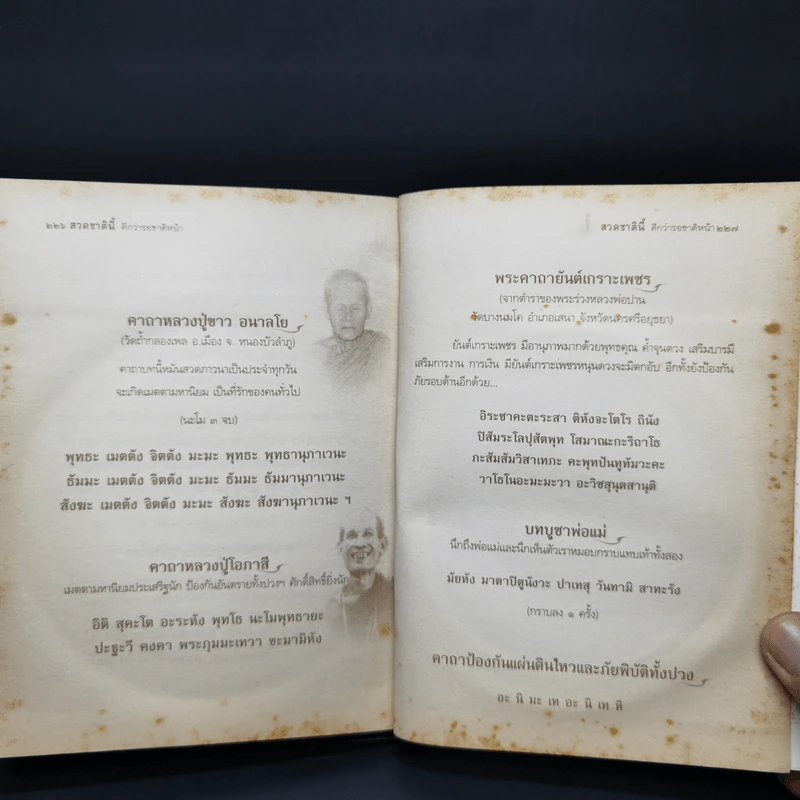 ๒๒๖ สวดชาตินี้ ดีกว่ารอชาติหน้า
คาถาหลวงปู่ขาว อนาลโย
(วัดถ้ำกลองเพล อ.เมือง จ. หนองบัวลำภู)
คาถาบทนี้หมั่นสวดภาวนาเป็นประจำทุกวัน
จะเกิดเมตตามหานิยม เป็นที่รักของคนทั่วไป
(นะโม ๓ จบ)
พุทธะ เมตตัง จิตตัง มะมะ พุทธะ พุทธานุภาเวนะ
ธัมมะ เมตตัง จิตตัง มะมะ ธัมมะ ธัมมานุภาเวนะ
สังฆะ เมตตัง จิตตัง มะมะ สังฆะ สังฆานุภาเวนะ ฯ
คาถาหลวงปู่โอภาสี
เมตตามหานิยมประเสริฐนัก ป้องกันอันตรายทั้งปวงฯ ศักดิ์สิทธิ์ยิ่งนัก
อิติ สุคะโต อะระหัง พุทโธ นะโมพุทธายะ
ปะฐะวี คงคา พระภุมมะเทวา ขะมามิหัง
สวดชาตินี้ ดีกว่ารอชาติหน้า ๒๒๗
พระคาถายันต์เกราะเพชร
(จากตำราของพระร่วงหลวงพ่อปาน
วัดบางนมโค อำเภอเสนา จังหวัดนครศรีอยุธยา)
ยันต์เกราะเพชร มีอานุภาพมากด้วยพุทธคุณ ค้ำจุนดวง เสริมบารมี
เสริมการงาน การเงิน มียันต์เกราะเพชรหนุนดวงจะมิตกอับ อีกทั้งยังป้องกัน
ภัยรอบด้านอีกด้วย...
อิระชาคะตะระสา ติหังจะโตโร ถินัง
ปิสัมระโลปุสัตพุท โสมาณะกะริถาโธ
ภะสัมสัมวิสาเทภะ คะพุทปันทูทัมวะคะ
วาโธโนอะมะมะวา อะวิชสุนุตสานุติ
บทบูชาพ่อแม่
นึกถึงพ่อแม่และนึกเห็นตัวเราหมอบกราบแทบเท้าทั้งสอง
มัยหัง มาตาปิตูนังวะ ปาเทสุ วันทามิ สาทะรัง
(กราบลง ๑ ครั้ง)
คาถาป้องกันแผ่นดินไหวและภัยพิบัติทั้งปวง
อะ นิ มะ เท อะ นิ เท หิ